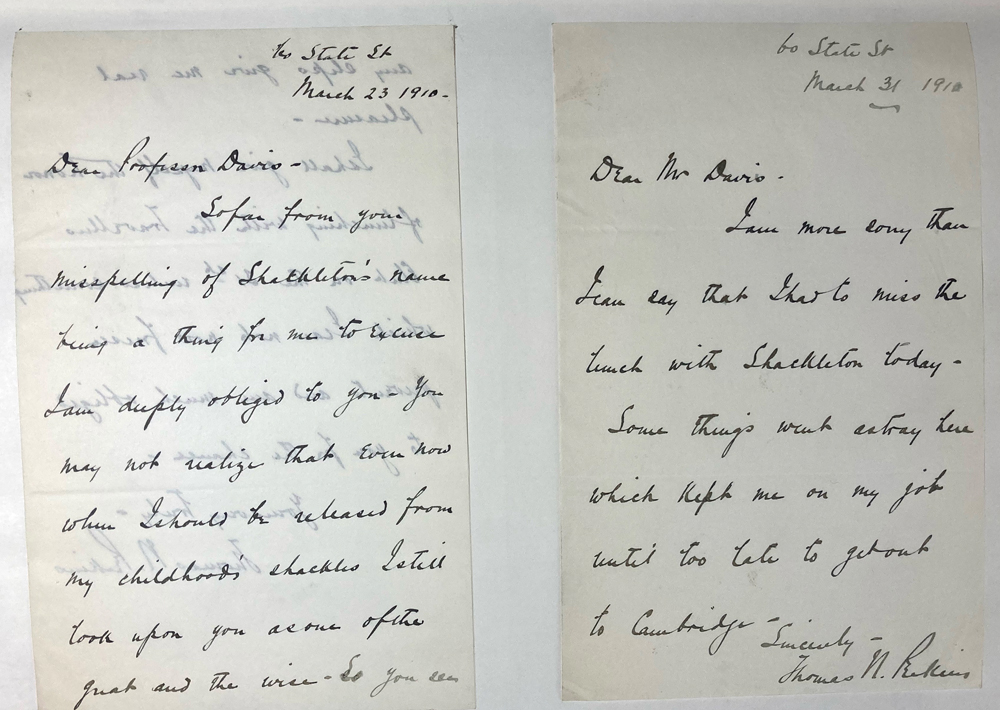 60 State St
March 23 1910-
Dear Professor Davis-
So far from your
misspelling of Shackleton's name
being a thing for me to excuse
I am deeply obliged to you- You
may not realize that even now
when I should be released from
my childhood's shackles I still
look upon you as one of the
great and the wise- So you see
60 State St
March 31 1910
Dear Mr Davis-
I am more sorry than
I can say that I had to miss the
lunch with Shackleton today-
Some things went astray here
which kept me on my job
until too late to get out
to Cambridge-
Sincerely-
Thomas N. Perkins